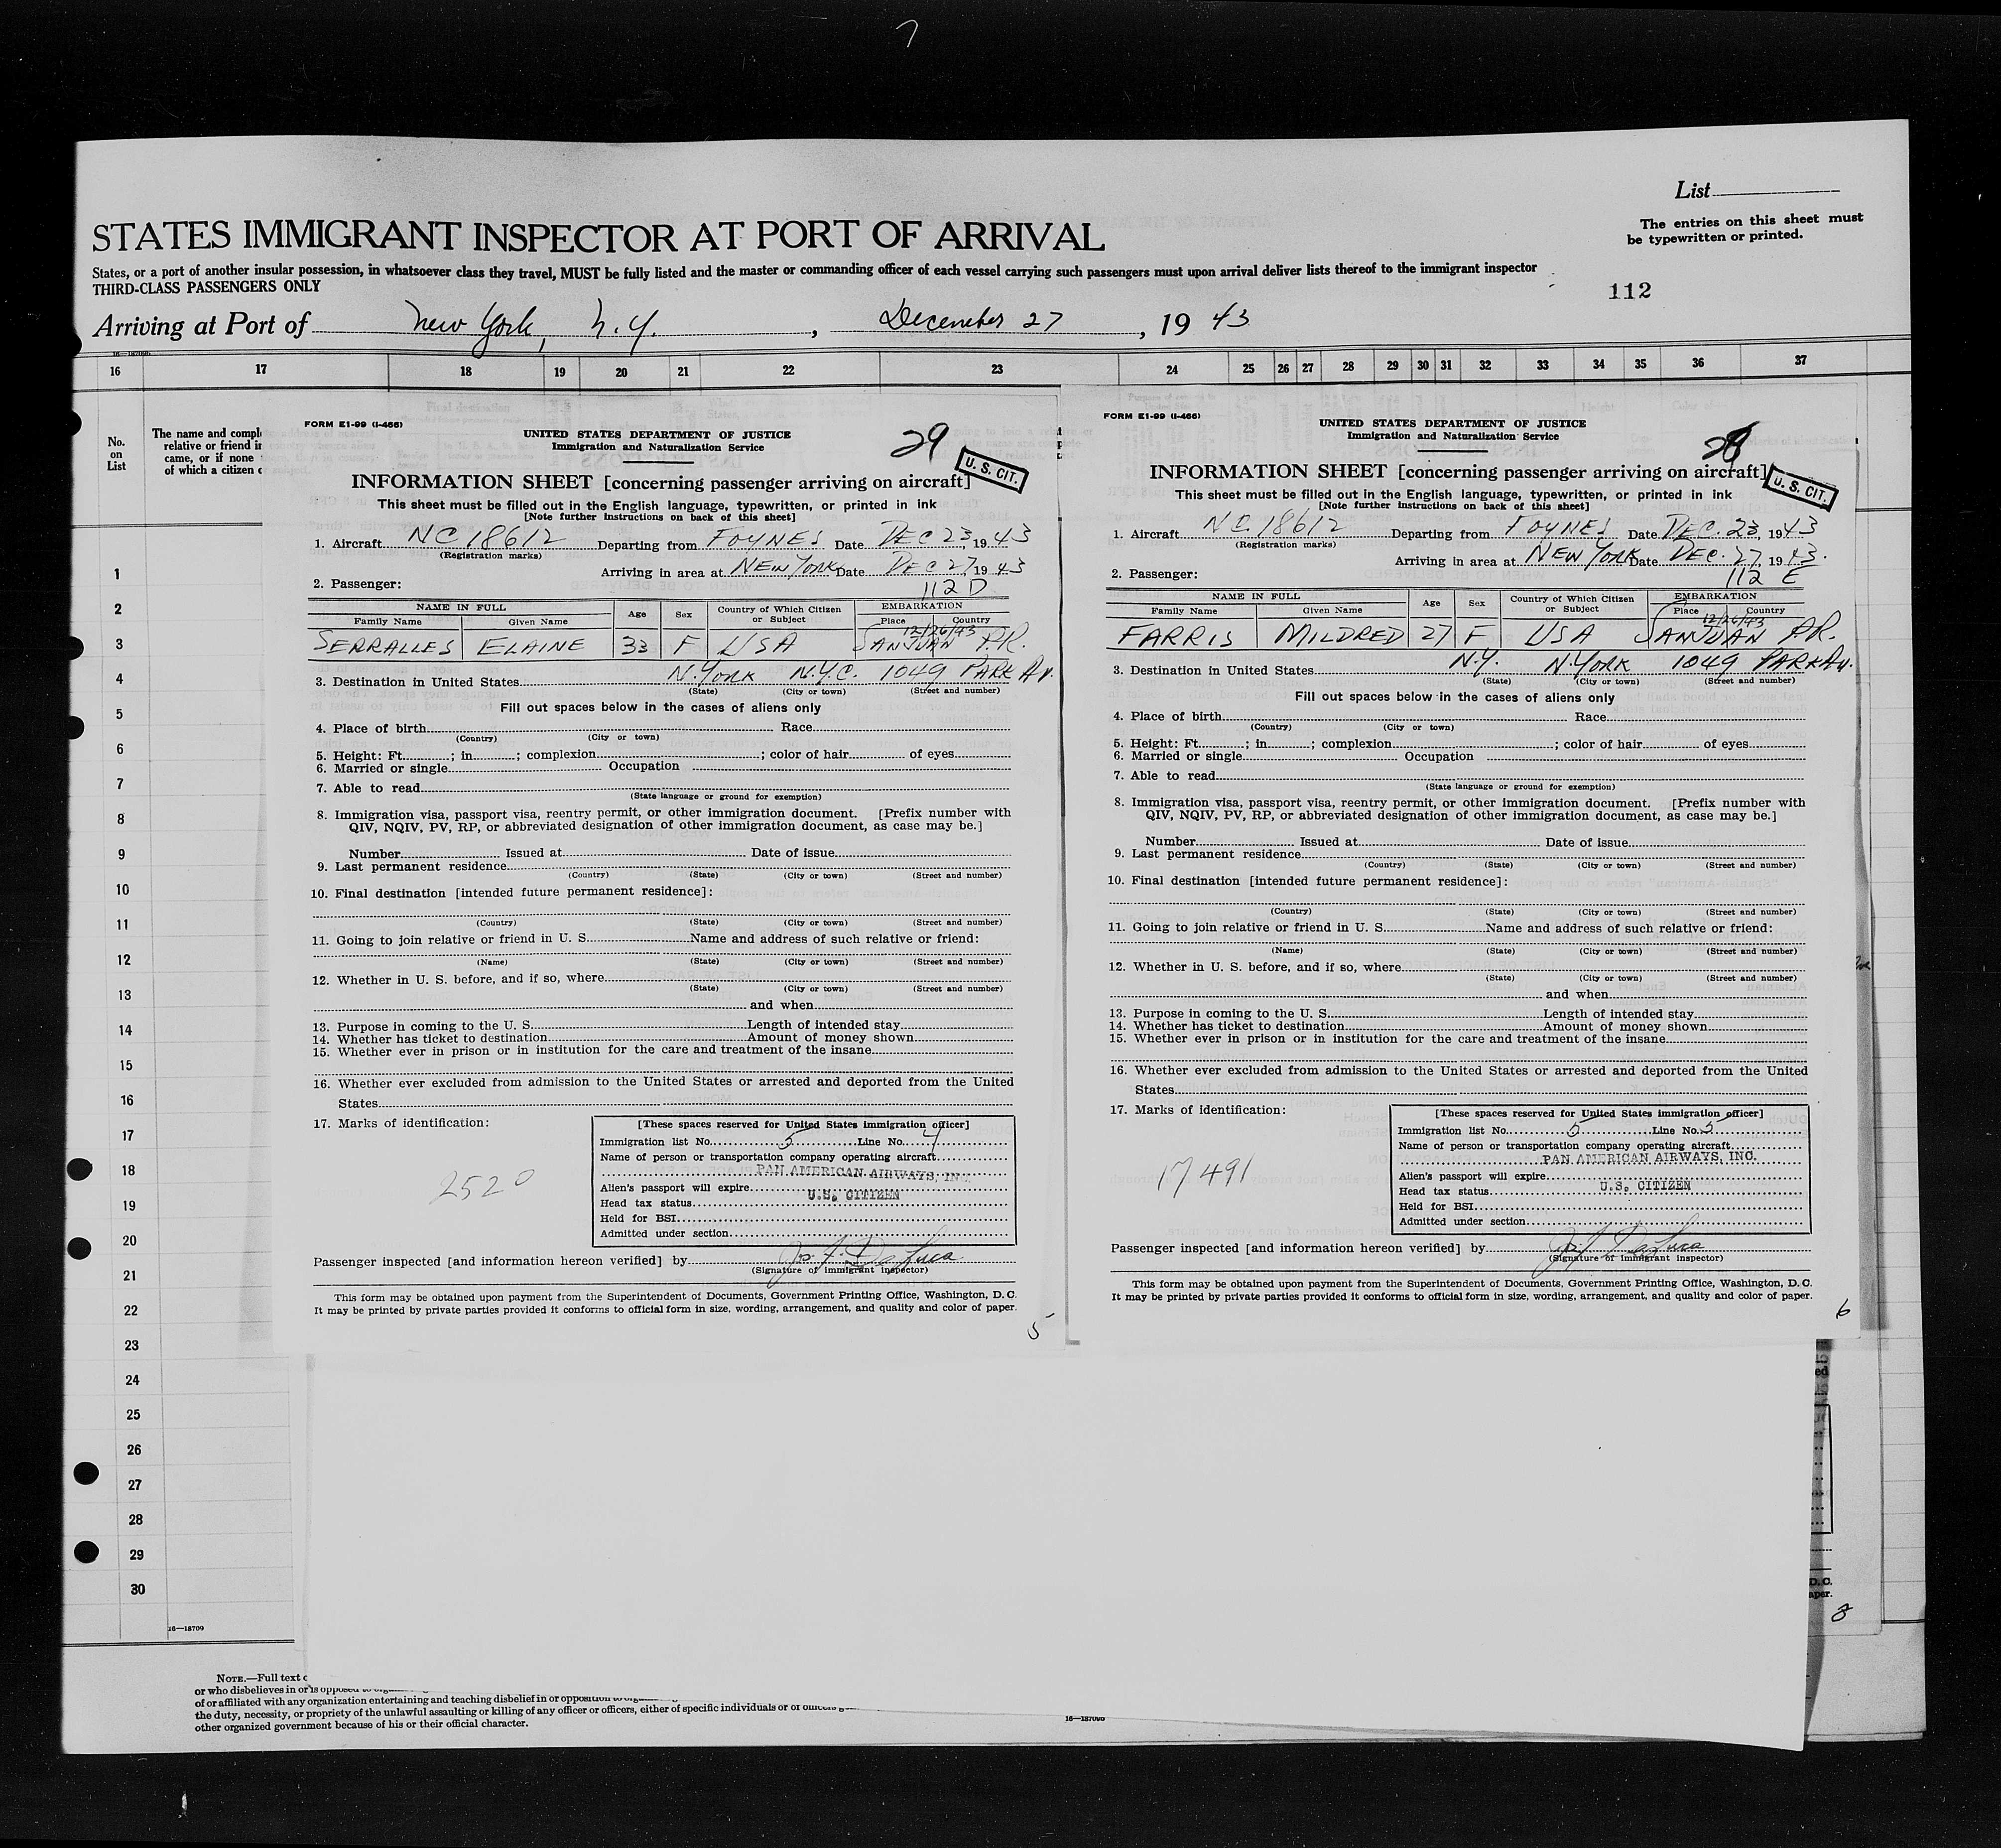 List
STATES IMMIGRANT INSPECTOR AT PORT OF ARRIVAL
The entries on this sheet must
be typewritten or printed.
States, or a port of another insular possession, in whatsoever class they travel, MUST be fully listed and the master or commanding officer of each vessel carrying such passengers must upon arrival deliver lists thereof to the immigrant inspector
THIRD-CLASS PASSENGERS ONLY
112
Arriving at Port of New York, N. Y. , December 27 , 19 43
16 17 18 19 20 21 22 23 24 25 26 27 28 29 30 31 32 33 34 35 36 37
No.
on
List
The name and compl
relative or friend i
came, or if none
of which a citizen
1
2
3
4
5
6
7
8
9
10
11
12
13
14
15
16
17
18
19
20
21
22
23
24
25
26
27
28
29
30
16—18709
FORM E1-99 (I-466)
UNITED STATES DEPARTMENT OF JUSTICE
Immigration and Naturalization Service
29
U. S. CIT.
INFORMATION SHEET [concerning passenger arriving on aircraft]
This sheet must be filled out in the English language, typewritten, or printed in ink
[Note further instructions on back of this sheet]
1. Aircraft NC 18612 Departing from FOYNES Date DEC 23, 19 43
(Registration marks)
Arriving in area at NEW YORK Date DEC 27, 19 43
2. Passenger:
112 D
NAME IN FULL Age Sex Country of Which Citizen or Subject EMBARKATION
Family Name Given Name Place Country
12/26/43
SERRALLES ELAINE 33 F USA SAN JUAN P.R.
3. Destination in United States N. YORK N.Y.C. 1049 PARK AV.
(State) (City or town) (Street and number)
Fill out spaces below in the cases of aliens only
4. Place of birth Race
(Country) (City or town)
5. Height: Ft. ; in. ; complexion ; color of hair of eyes
6. Married or single Occupation
7. Able to read
(State language or ground for exemption)
8. Immigration visa, passport visa, reentry permit, or other immigration document. [Prefix number with
QIV, NQIV, PV, RP, or abbreviated designation of other immigration document, as case may be.]
Number Issued at Date of issue
9. Last permanent residence
(Country) (State) (City or town) (Street and number)
10. Final destination [intended future permanent residence]:
(Country) (State) (City or town) (Street and number)
11. Going to join relative or friend in U. S. Name and address of such relative or friend:
(Name) (State) (City or town) (Street and number)
12. Whether in U. S. before, and if so, where
(State) (City or town) (Street and number)
and when
13. Purpose in coming to the U. S. Length of intended stay
14. Whether has ticket to destination Amount of money shown
15. Whether ever in prison or in institution for the care and treatment of the insane
16. Whether ever excluded from admission to the United States or arrested and deported from the United
States
17. Marks of identification:
[These spaces reserved for United States immigration officer]
Immigration list No. 5 Line No. 4
Name of person or transportation company operating aircraft
PAN AMERICAN AIRWAYS, INC.
2520
Alien's passport will expire
U.S. CITIZEN
Head tax status
Held for BSI
Admitted under section
Passenger inspected [and information hereon verified] by Jos. F. De Luca
(Signature of immigrant inspector)
This form may be obtained upon payment from the Superintendent of Documents, Government Printing Office, Washington, D. C.
It may be printed by private parties provided it conforms to official form in size, wording, arrangement, and quality and color of paper.
5
FORM E1-99 (I-466)
UNITED STATES DEPARTMENT OF JUSTICE
Immigration and Naturalization Service
U. S. CIT.
INFORMATION SHEET [concerning passenger arriving on aircraft]
This sheet must be filled out in the English language, typewritten, or printed in ink
[Note further instructions on back of this sheet]
1. Aircraft NC. 18612 Departing from FOYNES Date DEC. 23, 19 43
(Registration marks)
Arriving in area at NEW YORK Date DEC. 27, 19 43.
2. Passenger:
112 E
NAME IN FULL Age Sex Country of Which Citizen or Subject EMBARKATION
Family Name Given Name Place Country
12/26/43
FARRIS MILDRED 27 F USA SAN JUAN P.R.
3. Destination in United States N.Y. N. YORK 1049 PARK AV.
(State) (City or town) (Street and number)
Fill out spaces below in the cases of aliens only
4. Place of birth Race
(Country) (City or town)
5. Height: Ft. ; in. ; complexion ; color of hair of eyes
6. Married or single Occupation
7. Able to read
(State language or ground for exemption)
8. Immigration visa, passport visa, reentry permit, or other immigration document. [Prefix number with
QIV, NQIV, PV, RP, or abbreviated designation of other immigration document, as case may be.]
Number Issued at Date of issue
9. Last permanent residence
(Country) (State) (City or town) (Street and number)
10. Final destination [intended future permanent residence]:
(Country) (State) (City or town) (Street and number)
11. Going to join relative or friend in U. S. Name and address of such relative or friend:
(Name) (State) (City or town) (Street and number)
12. Whether in U. S. before, and if so, where
(State) (City or town) (Street and number)
and when
13. Purpose in coming to the U. S. Length of intended stay
14. Whether has ticket to destination Amount of money shown
15. Whether ever in prison or in institution for the care and treatment of the insane
16. Whether ever excluded from admission to the United States or arrested and deported from the United
States
17. Marks of identification:
[These spaces reserved for United States immigration officer]
Immigration list No. 5 Line No. 5
Name of person or transportation company operating aircraft
PAN AMERICAN AIRWAYS, INC.
17491
Alien's passport will expire
U.S. CITIZEN
Head tax status
Held for BSI
Admitted under section
Passenger inspected [and information hereon verified] by Jos. F. De Luca
(Signature of immigrant inspector)
This form may be obtained upon payment from the Superintendent of Documents, Government Printing Office, Washington, D. C.
It may be printed by private parties provided it conforms to official form in size, wording, arrangement, and quality and color of paper.
6
D. C.
aper.
8
NOTE.—Full text
or who disbelieves in or is opposed
of or affiliated with any organization entertaining and teaching disbelief in or opposition to
the duty, necessity, or propriety of the unlawful assaulting or killing of any officer or officers, either of specific individuals or of officers
other organized government because of his or their official character.